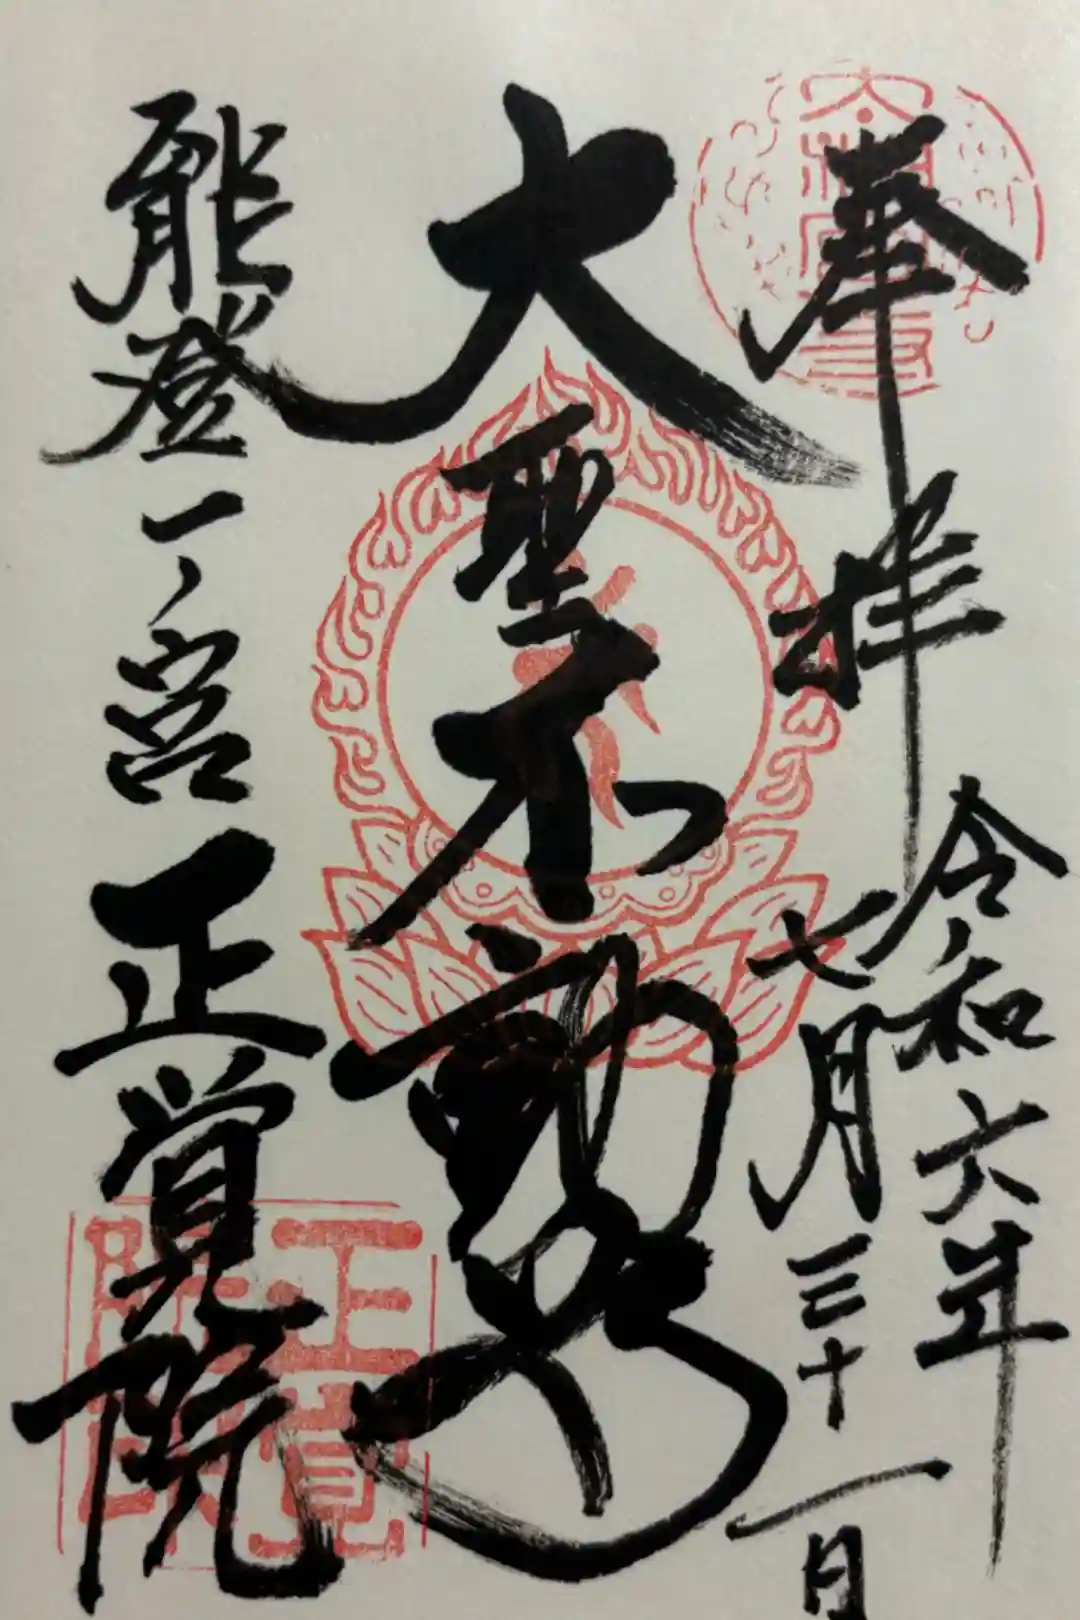 奉拝
令和六年
七月三十一日
大聖不動明
能登一ノ宮
正覚院
正覺院